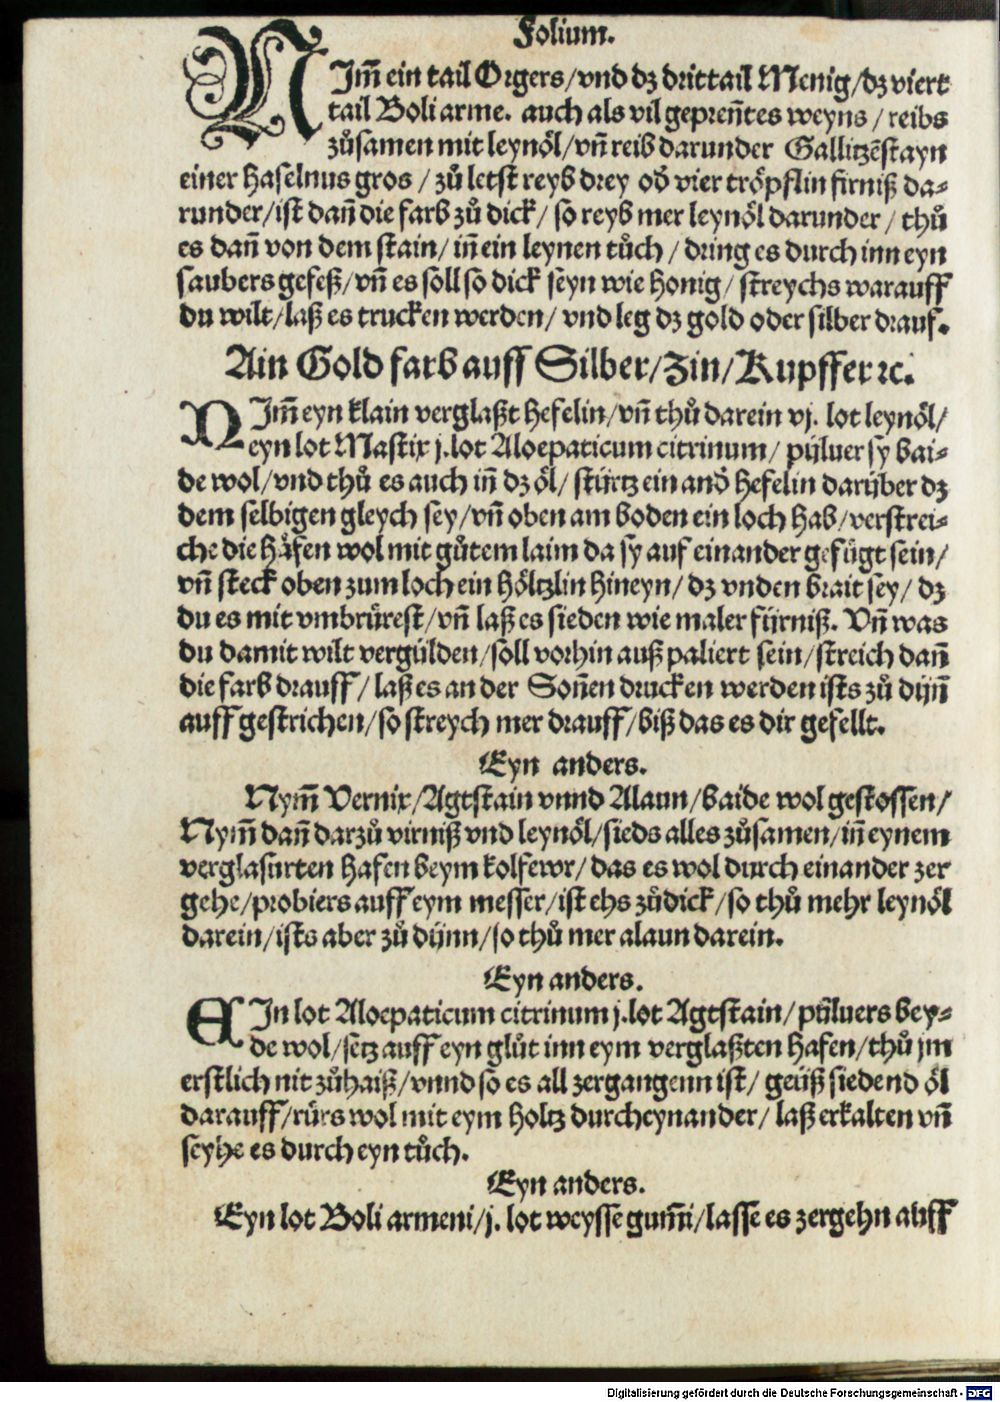 Folium.
NJm̃ ein tail Orgers/vnd dz drittail Menig/dz viert
tail Boli arme. auch als vil gepreñtes weyns/reibs
zůsamen mit leynöl/vñ reib darunder Gallitzẽstayn
einer haselnus gros/zů letst reyb drey od̕ vier tröpflin firniß da⸗
runder/ist dañ die farb zů dick/so reyb mer leynöl darunder/thů
es dañ von dem stain/iñ ein leynen tůch/dring es durch inn eyn
saubers gefeß/vñ es soll so dick seyn wie honig/streychs warauff
du wilt/laß es trucken werden/vnd leg dz gold oder silber drauf.
Ain Gold farb auff Silber/Zin/Kupffer ꝛc.
NJm̃ eyn klain verglaßt hefelin/vñ thů darein vj. lot leynöl/
eyn lot Mastix j.lot Aloepaticum citrinum/pülver sy bai⸗
de wol/vnd thů es auch iñ dz öl/stürtz ein and̕ hefelin darüber dz
dem selbigen gleych sey/vñ oben am boden ein loch hab/verstrei⸗
che die häfen wol mit gůtem laim da sy auf einander gefügt sein/
vñ steck oben zum loch ein höltzlin hineyn/dz vnden brait sey/dz
du es mit vmbrürest/vñ laß es sieden wie maler fürniß. Vñ was
du damit wilt vergülden/soll vorhin auß paliert sein/streich dañ
die farb drauff/laß es an der Soñen drucken werden ists zů düñ
auff gestrichen/so streych mer drauff/biß das es dir gefellt.
Eyn anders.
Nym̃ Vernix/Agtstain vnnd Alaun/baide wol gestossen/
Nym̃ dañ darzů virniß vnd leynöl/sieds alles zůsamen/iñ eynem
verglasurten hafen beym kolfewr/das es wol durch einander zer
gehe/probiers auff eym messer/ist ehs zů dick/so thů mehr leynöl
darein/ists aber zů dünn/so thů mer alaun darein.
Eyn anders.
EJn lot Aloepaticum citrinum j.lot Agtstain/pülvers bey⸗
de wol/setz auff eyn glůt inn eym verglaßten hafen/thů jm
erstlich nit zůhaiß/vnnd so es all zergangenn ist/geüß siedend öl
darauff/rürs wol mit eym holtz durcheynander/laß erkalten vñ
seyhe es durch eyn tůch.
Eyn anders.
Eyn lot Boli armeni/j. lot weysse gum̃i/lasse es zergehn auff
Digitalisierung gefördert durch die Deutsche Forschungsgemeinschaft - DFG